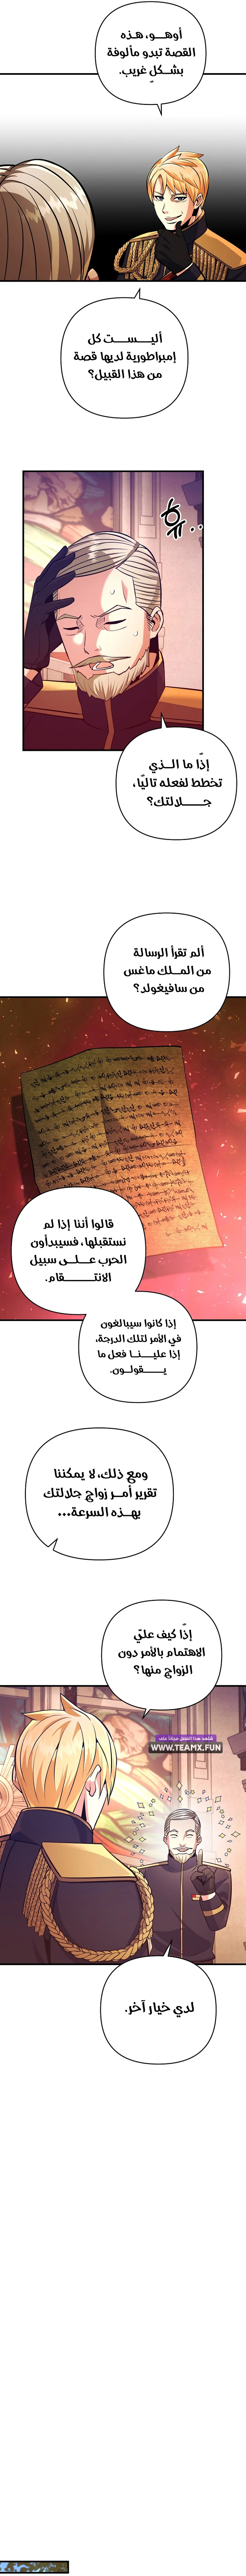 أوهـــو، هـذه
القصة تبدو مألوفة
بشــكل غريب.
أليــــســــت كل
إمبراطورية لديها قصة
من هذا القبيل؟
إذًا ما الــذي
تخطط لفعله تاليًا،
جـــــلالتك؟
ألم تقرأ الرسالة
من المــلك ماغس
من سافيغولد؟
قالوا أننا إذا لم
نستقبلها، فسيبدأون
الحرب عــلــى سبيل
الانتـــــــقام.
إذا كانوا سيبالغون
في الأمر لتلك الدرجة،
إذا علينـــا فعل ما
يــــقولـــون.
ومع ذلك، لا يمكننا
تقرير أمــر زواج جلالتك
بهــذه السرعة...
إذًا كيف عليّ
الاهتمام بالأمر دون
الزواج منها؟
شاهد هذا الفصل مجانا على
WWW.TEAMX.FUN
لدي خيار آخر.